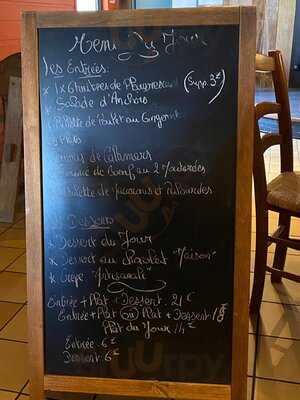 Menu Du Jour
Les Entrées:
* 1 x 6 huîtres de Plouguerneau (Supp. 3€)
* Salade d'
de Poulet au Gingembre
Plats
de Calamars
de Boeuf au 2 Moutardes
de et Palourdes
Desserts
* Dessert du Jour
* Dessert au chocolat "Maison"
* Crêpe "Artisanale"
Entrée + Plat + Dessert: 21€
Entrée + Plat ou Plat + Dessert
Plat du Jour
Entrée: 6€
Dessert: 6€